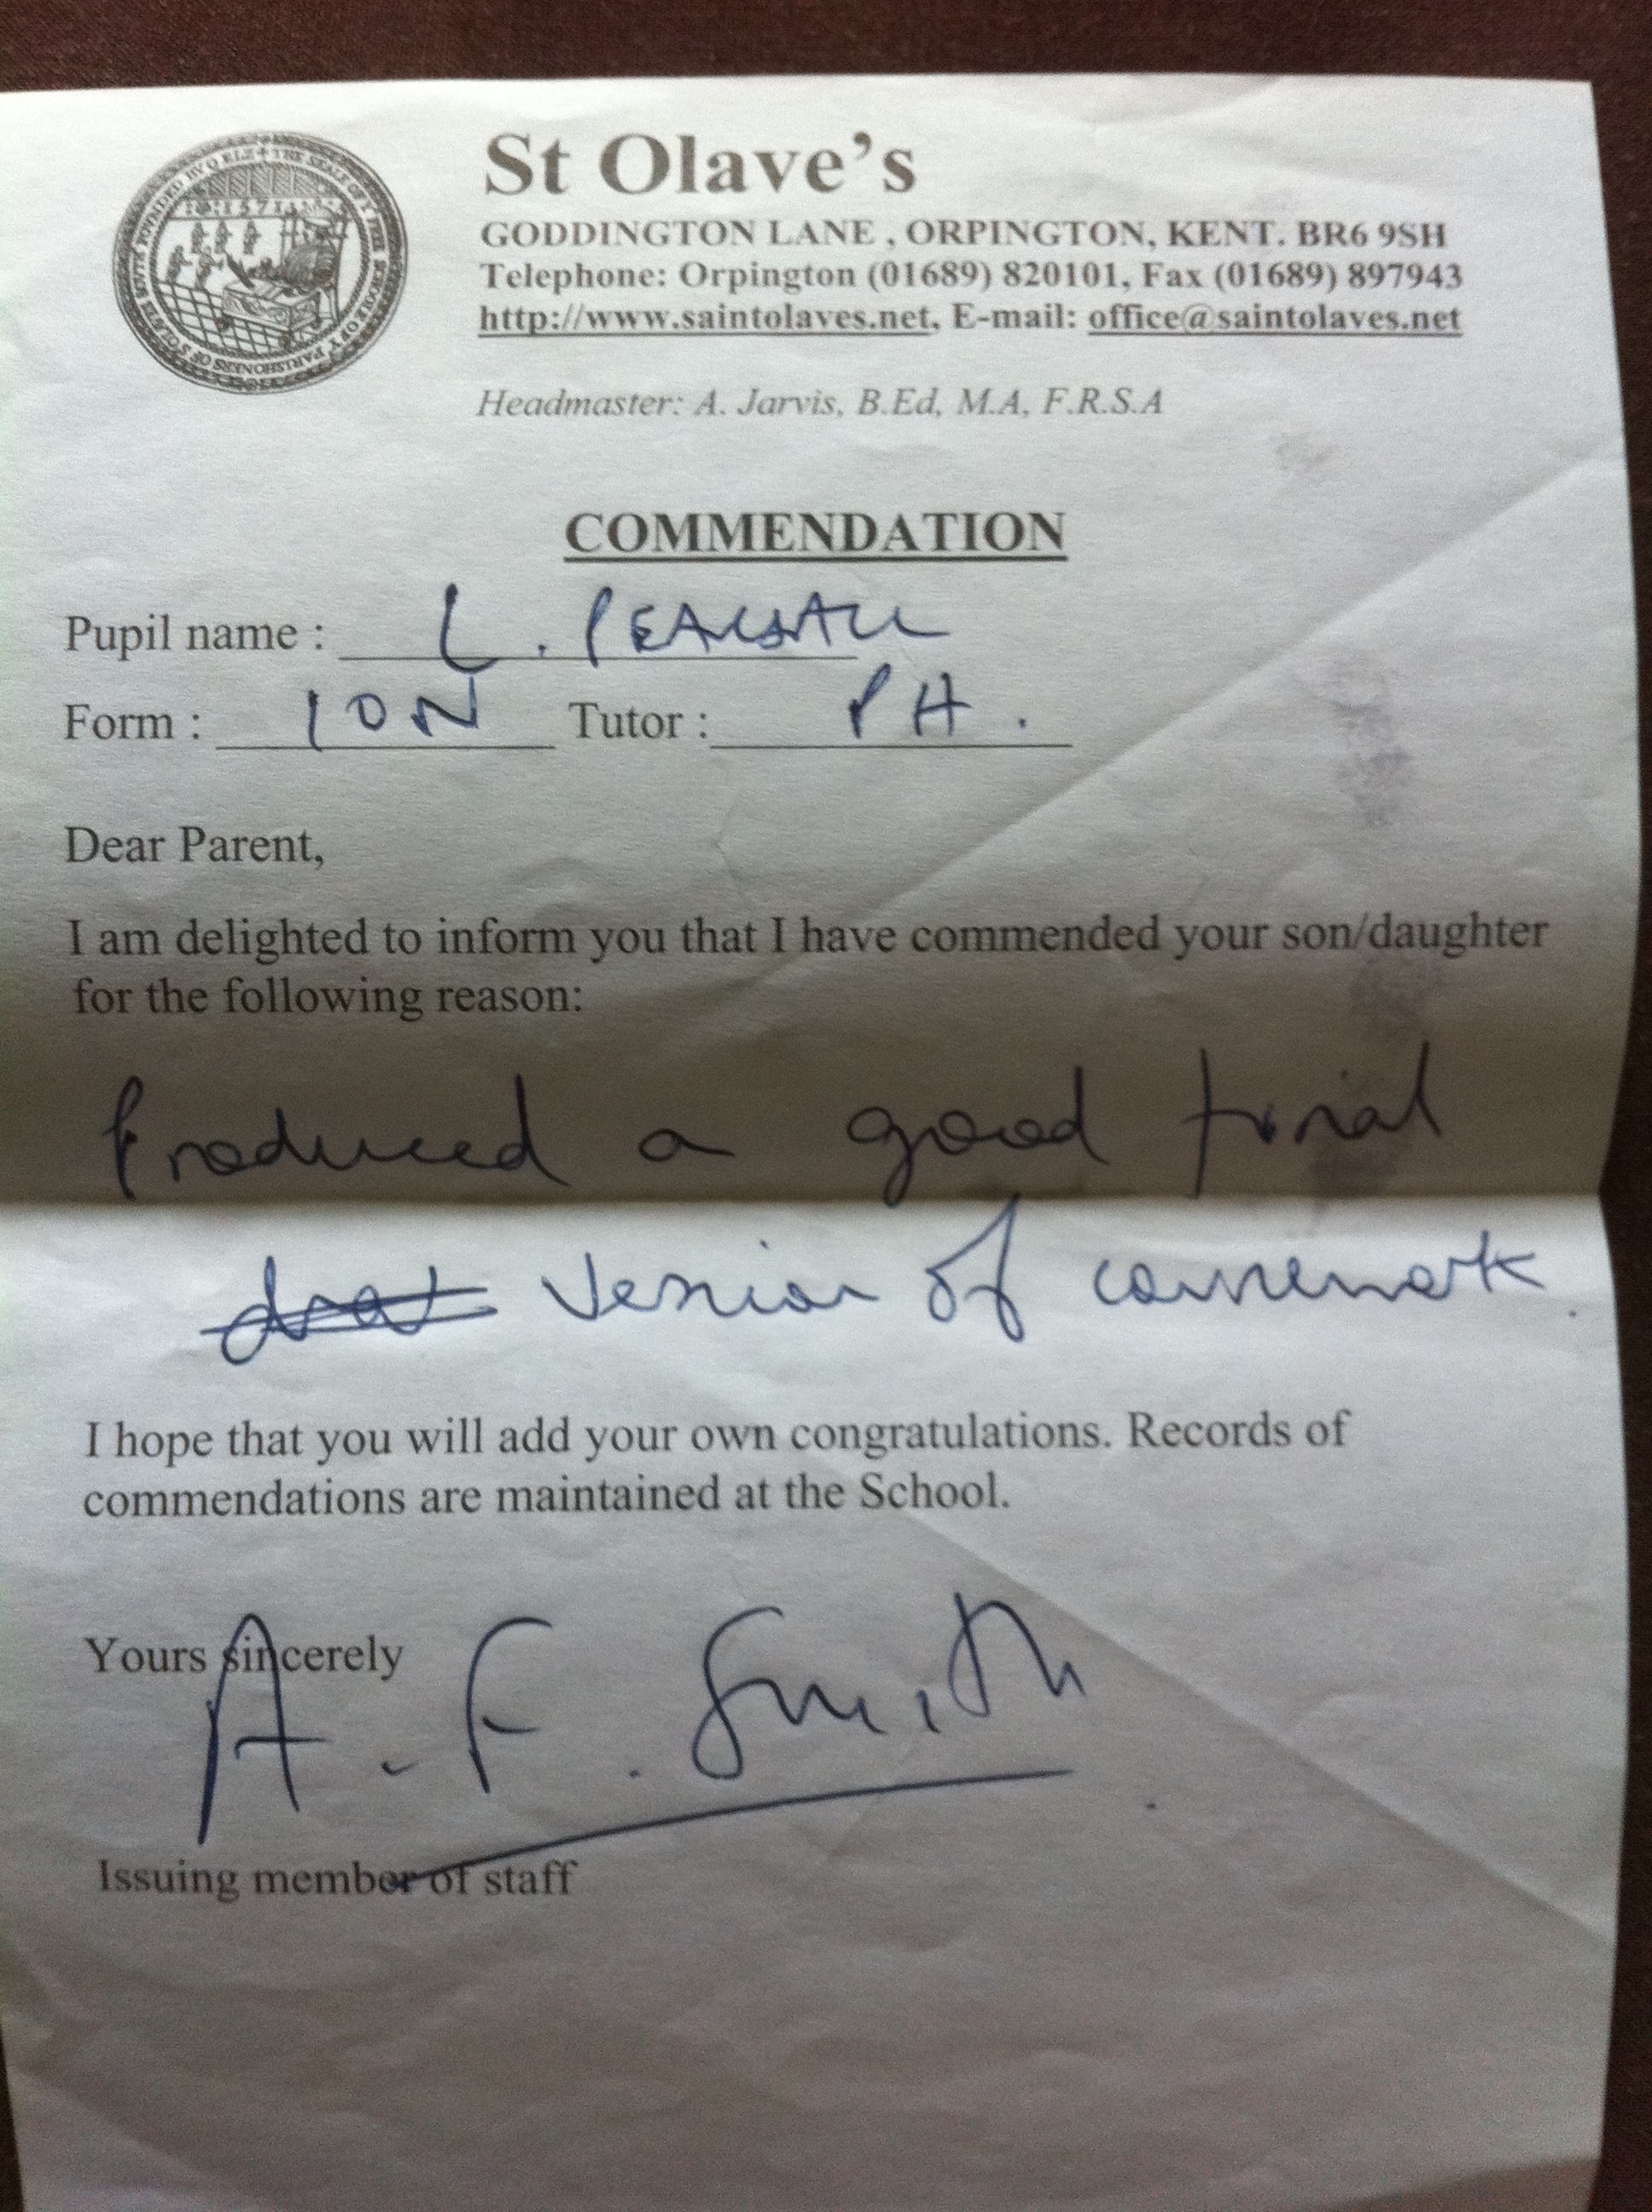 St Olave's
GODDINGTON LANE , ORPINGTON, KENT. BR6 9SH
Telephone: Orpington (01689) 820101, Fax (01689) 897943
http://www.saintolaves.net, E-mail: office@saintolaves.net
Headmaster: A. Jarvis, B.Ed, M.A, F.R.S.A
COMMENDATION
Pupil name : L. PEARSALL
Form : 10N Tutor : PH.
Dear Parent,
I am delighted to inform you that I have commended your son/daughter
for the following reason:
Produced a good final
version of coursework.
I hope that you will add your own congratulations. Records of
commendations are maintained at the School.
Yours sincerely
A. F. Smith
Issuing member of staff